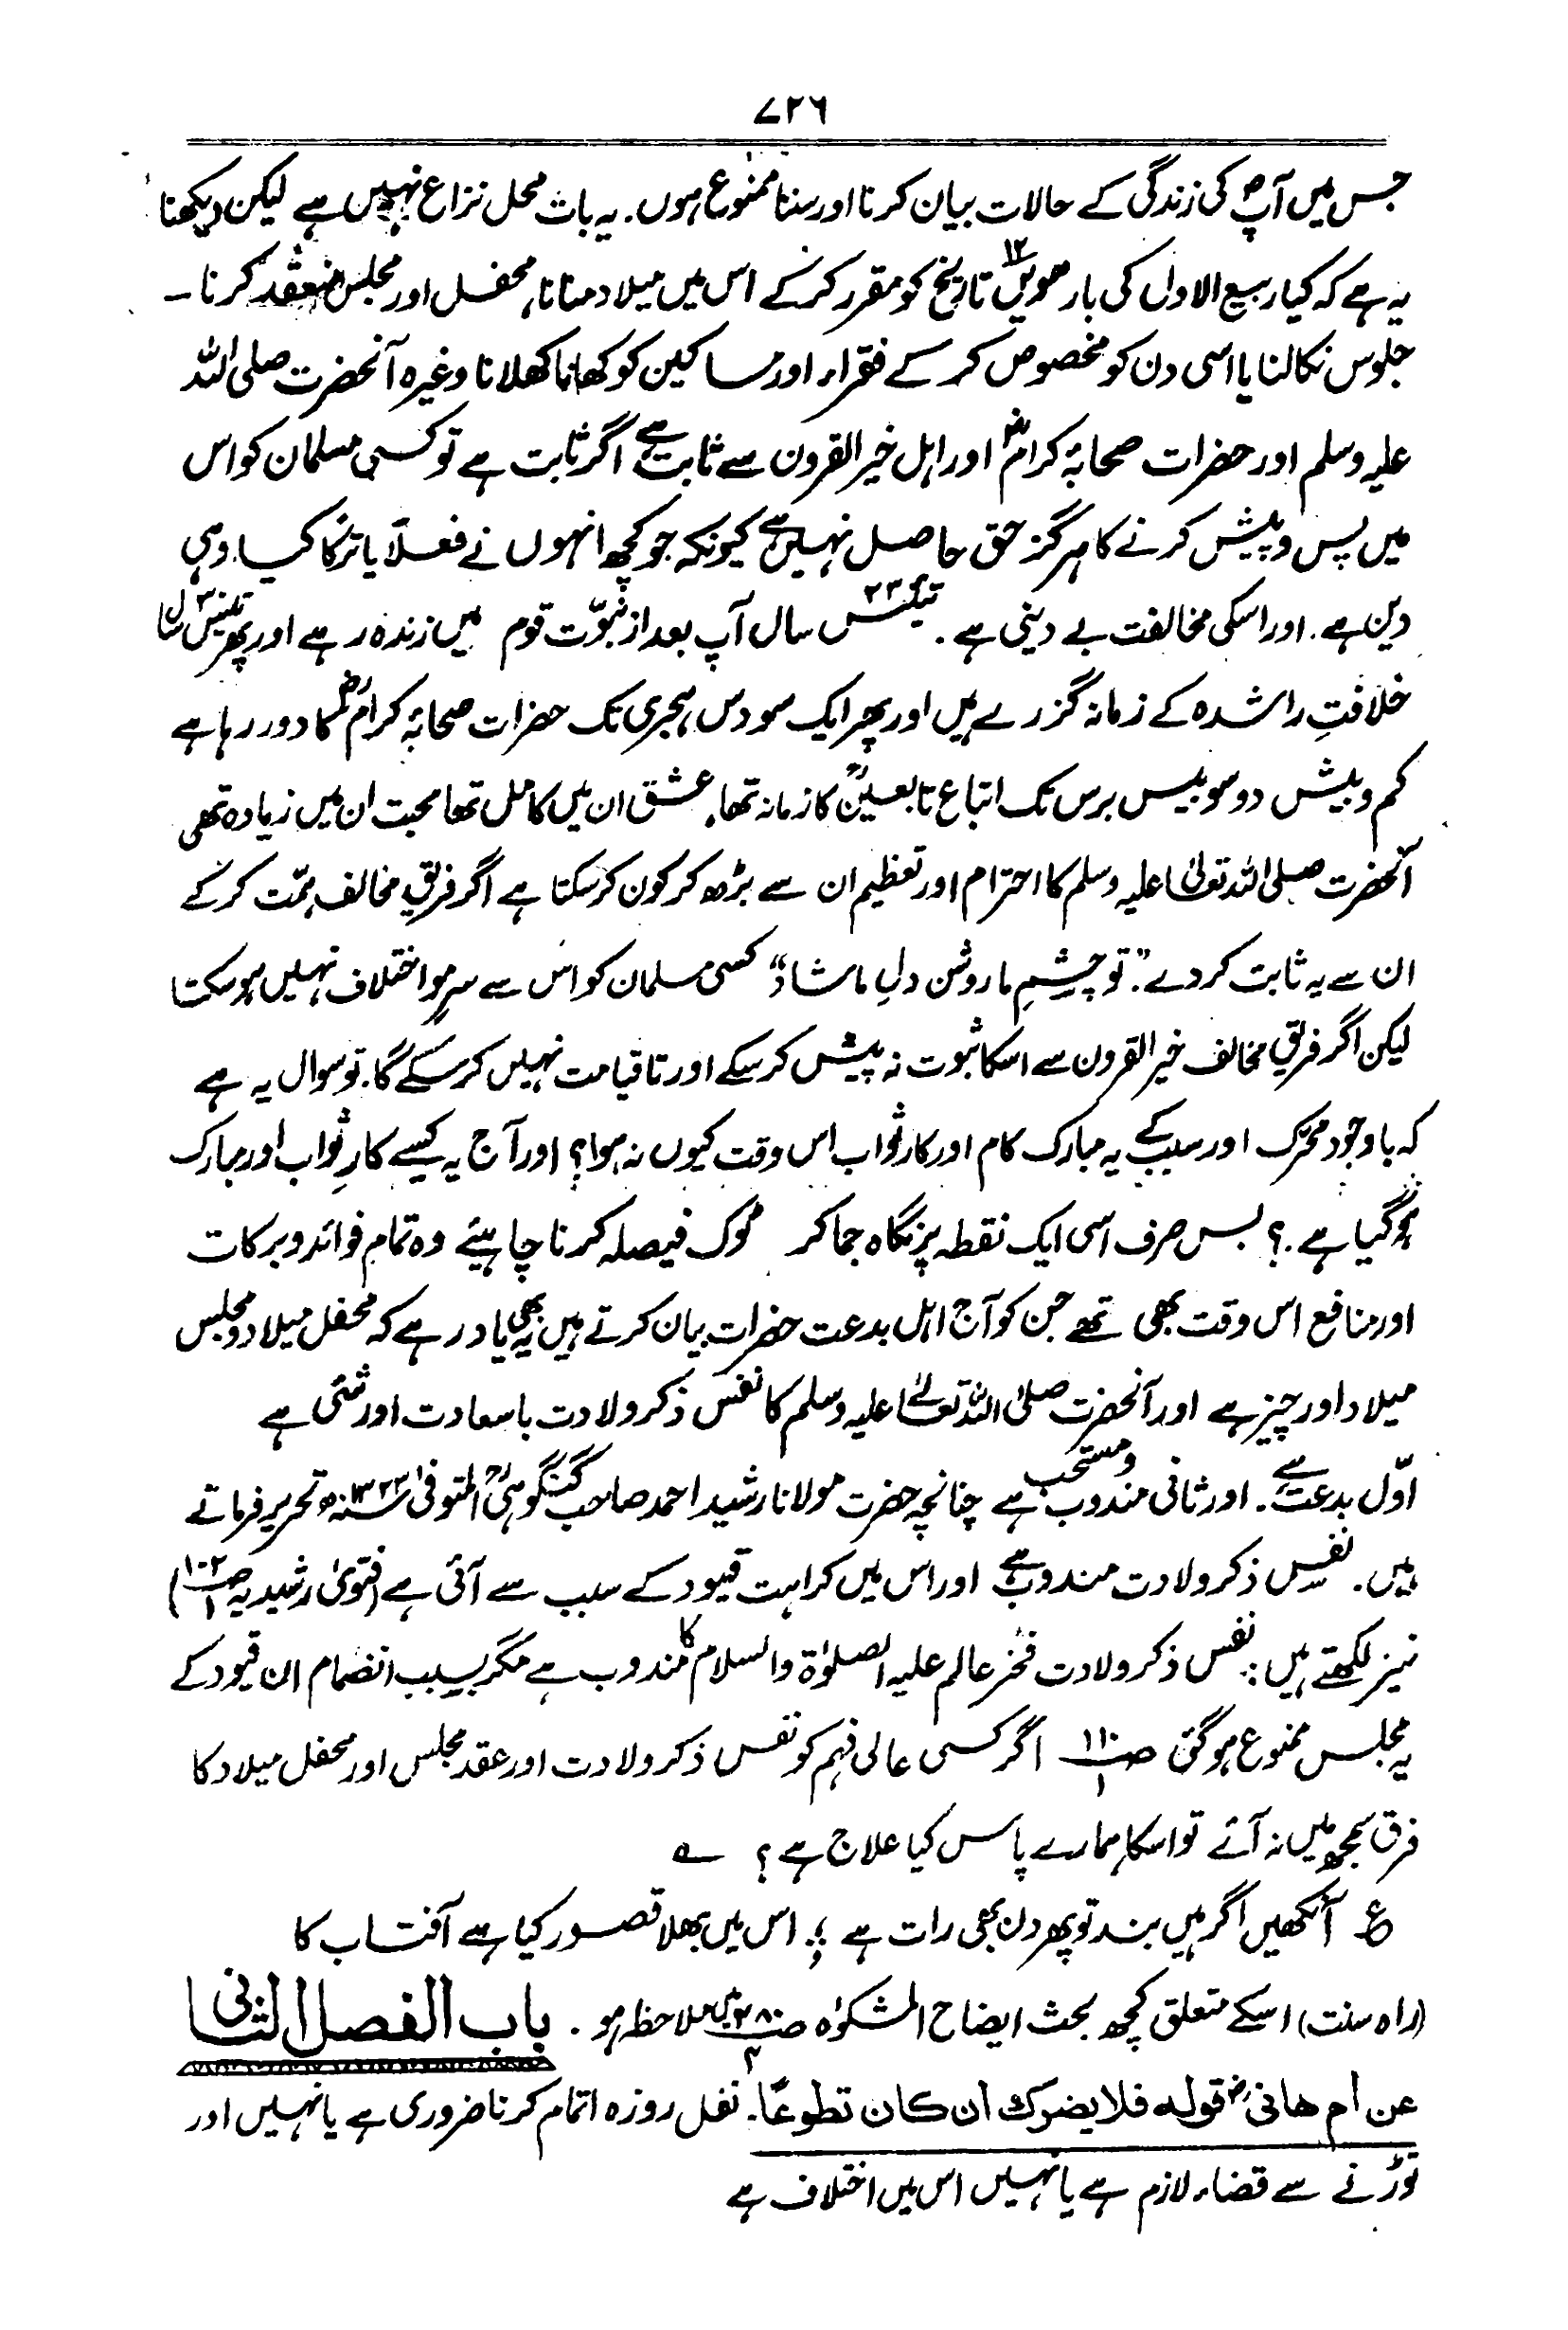 ۷۲۶
جس میں آپؐ کی زندگی کے حالات بیان کرنا اور سننا ممنوع ہوں. یہ بات محل نزاع نہیں ہے لیکن دیکھنا
یہ ہے کہ کیا ربیع الاول کی بارھویں ۱۲ تاریخ کو مقرر کرکے اس میں میلاد منانا، محفل اور مجلس منعقد کرنا -
جلوس نکالنا یا اسی دن کو مخصوص کرکے فقراء اور مساکین کو کھانا کھلانا وغیرہ آنحضرت صلی اللہ
علیہ وسلم اور حضرات صحابۂ کرامؓ اور اہل خیر القرون سے ثابت ہے اگر ثابت ہے تو کسی مسلمان کو اس
میں پس و پیش کرنے کا ہرگز حق حاصل نہیں ہے کیونکہ جو کچھ انہوں نے فعلاً یا ترکا کیا وہی
دین ہے. اور اسکی مخالفت بے دینی ہے. تیئیس ۲۳ سال آپ بعد از نبوّت قوم میں زندہ رہے اور پھر تیس ۳۰ سال
خلافتِ راشدہ کے زمانہ گزرے ہیں اور پھر ایک سو دس ہجری تک حضرات صحابۂ کرامؓ کا دور رہا ہے
کم و بیش دو سو بیس برس تک اتباع تابعینؒ کا زمانہ تھا. عشق ان میں کامل تھا محبت ان میں زیادہ تھی
آنحضرت صلی اللہ تعالیٰ علیہ وسلم کا احترام اور تعظیم ان سے بڑھ کر کون کرسکتا ہے اگر فریقِ مخالف ہمّت کرکے
ان سے یہ ثابت کردے. "تو چشمِ ما روشن دلِ ما شاد" کسی مسلمان کو اس سے سرِ مو اختلاف نہیں ہوسکتا
لیکن اگر فریقِ مخالف خیر القرون سے اسکا ثبوت نہ پیش کرسکے اور تا قیامت نہیں کرسکے گا. تو سوال یہ ہے
کہ باوجود محرّک اور سبب کے یہ مبارک کام اور کارِ ثواب اس وقت کیوں نہ ہوا؟ اور آج یہ کیسے کارِ ثواب اور مبارک
ہوگیا ہے.؟ بس صرف اسی ایک نقطہ پر نگاہ جما کر ٹوک فیصلہ کرنا چاہیئے وہ تمام فوائد و برکات
اور منافع اس وقت بھی تھے جن کو آج اہل بدعت حضرات بیان کرتے ہیں یہ بھی یاد رہے کہ محفل میلاد و مجلس
میلاد اور چیز ہے اور آنحضرت صلی اللہ تعالےٰ علیہ وسلم کا نفس ذکر ولادت باسعادت اور شئی ہے
اوّل بدعت ہے. اور ثانی مندوب و مستحب ہے چنانچہ حضرت مولانا رشید احمد صاحب گنگوہیؒ المتوفیٰ ۱۳۲۳ھ تحریر فرماتے
ہیں. نفس ذکر ولادت مندوب ہے اور اس میں کراہت قیود کے سبب سے آئی ہے (فتویٰ رشیدیہ صـ ۱۰۲/۱)
نیز لکھتے ہیں: نفس ذکر ولادت فخر عالم علیہ الصلوٰۃ والسلام کا مندوب ہے مگر بسبب انضمام ان قیود کے
یہ مجلس ممنوع ہوگئی صـ ۱۱۰/۱ اگر کسی عالی فہم کو نفس ذکر ولادت اور عقد مجلس اور محفل میلاد کا
فرق سمجھ میں نہ آئے تو اسکا ہمارے پاس کیا علاج ہے؟
ع آنکھیں اگر ہیں بند تو پھر دن بھی رات ہے ؛ اس میں بھلا قصور کیا ہے آفتاب کا
(راہ سنت) اسکے متعلق کچھ بحث ایضاح المشکوٰہ میں ملاحظہ ہو. باب الفصل الثانی
عن ام ھانیؓ قوله فلا یضرك ان كان تطوعًا. نفل روزہ اتمام کرنا ضروری ہے یا نہیں اور
توڑنے سے قضاء لازم ہے یا نہیں اس میں اختلاف ہے